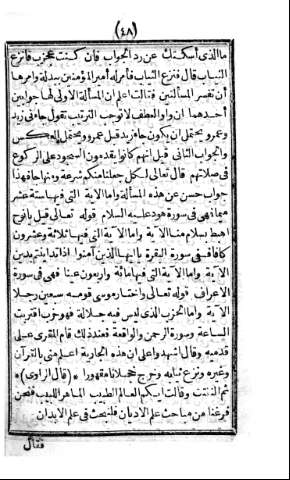 (٤٨)
ما الذى أسكتك عن رد الجواب فان كنت عجزت فانزع
الثياب قال فنزع الثياب فأمر له أمير المؤمنين ببدلة وأمرها
أن تفسر المسألتين فقالت اعلم ان المسألة الاولى لها جوابين
أحدهما ان واو العطف لا توجب الترتيب تقول جاءنى زيد
وعمرو يحتمل ان يكون جاء زيد قبل عمرو ويحتمل العكس
والجواب الثانى قيل انهم كانوا يقدمون السجود على الركوع
فى صلاتهم قال تعالى لكل جعلنا منكم شرعة ومنهاجا فهذا
جواب حسن عن هذه المسألة واما الآية التى فيها ستة عشر
ميما فهى فى سورة هود عليه السلام قوله تعالى قيل يا نوح
اهبط بسلام منا الآية واما الآية التى فيها ثلاثة وعشرون
كافا فهى فى سورة البقرة يا ايها الذين آمنوا اذا تداينتم بدين
الآية واما الآية التى فيها مائة واربعون عينا فهى فى سورة
الاعراف قوله تعالى واختار موسى قومه سبعين رجلا
الآية واما الحزب الذى ليس فيه جلالة فهو حزب اقتربت
الساعة وسورة الرحمن والواقعة فعند ذلك قام المقرى على
قدميه وقال اشهدوا على ان هذه الجارية اعلم منى بالقرآن
وغيره ونزع ثيابه وخرج خجلا مقهورا * (قال الراوى) *
ثم التفتت وقالت ايكم العالم الطبيب الماهر اللبيب فنحن
فرغنا من مباحث علم الاديان فلنبحث فى علم الابدان
فقال